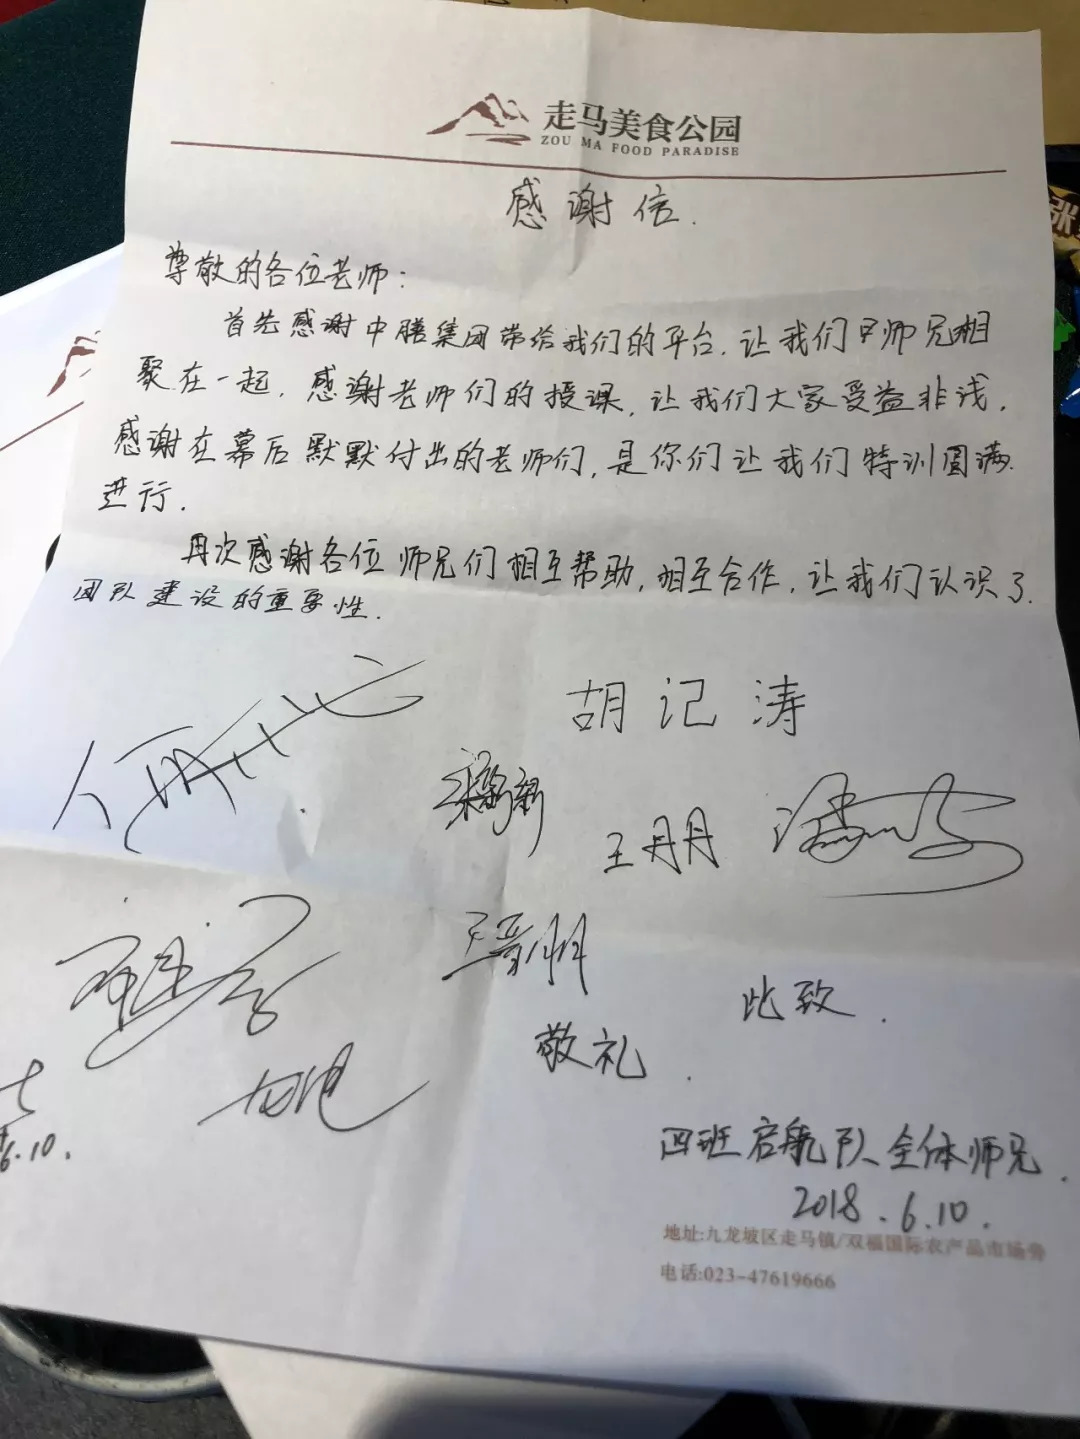 走马美食公园
ZOU MA FOOD PARADISE
感谢信.
尊敬的各位老师:
首先感谢中膳集团带给我们的平台.让我们師兄相
聚在一起.感谢老师们的授课,让我们大家受益非浅.
感谢在幕后默默付出的老师们,是你们让我们特训圆满
进行.
再次感谢各位师兄们相互帮助,相互合作,让我们认识了
团队建设的重要性.
胡记涛
王丹丹
此致.
敬礼.
6.10.
四班启航队全体师兄.
2018.6.10.
地址:九龙坡区走马镇/双福国际农产品市场旁
电话:023-47619666